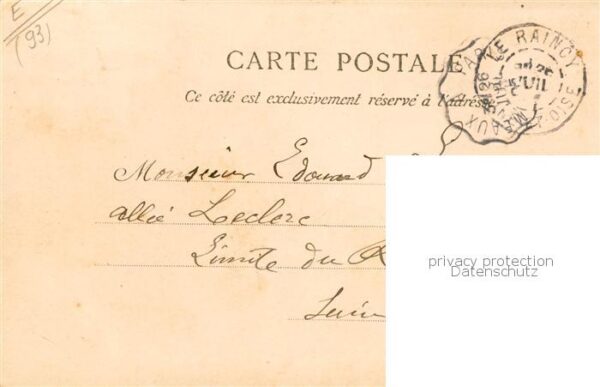 E
(93)
CARTE POSTALE
Ce côté est exclusivement réservé à l'adresse
LE RAINCY
Monsieur Edouard
allée Leclerc
Limite du
privacy protection
Datenschutz